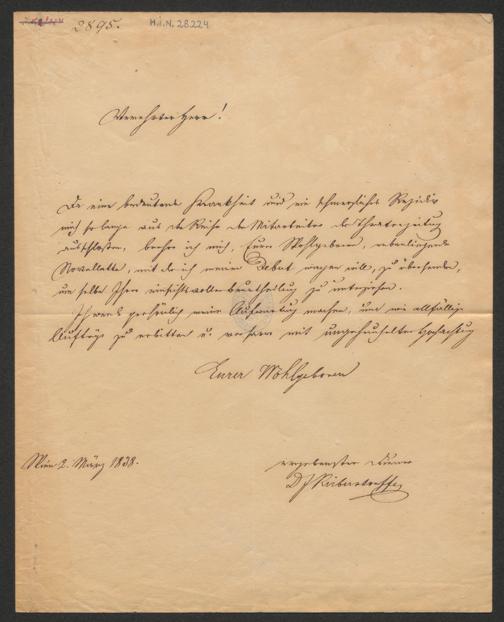 2895.
H.I.N. 28224
Verehrter Herr!
Da eine bedeutende Krankheit und ein schmerzliches Rezidiv
mich so lange aus der Reihe der Mitarbeiter der Theaterzeitung
ausschlossen, beehre ich mich, Euer Wohlgeboren, anliegende
Novellette, mit der ich mein Debut wagen will, zu übersenden,
um selbe Ihrer einsichtsvollen Beurtheilung zu unterziehen.
Ich werde persönlich meine Aufwartung machen, um mir allfällige
Aufträge zu erbitten u. verharre mit ungeheuchelter Hochachtung
Eurer Wohlgeboren
Wien 2. März 1838.
ergebenster Diener